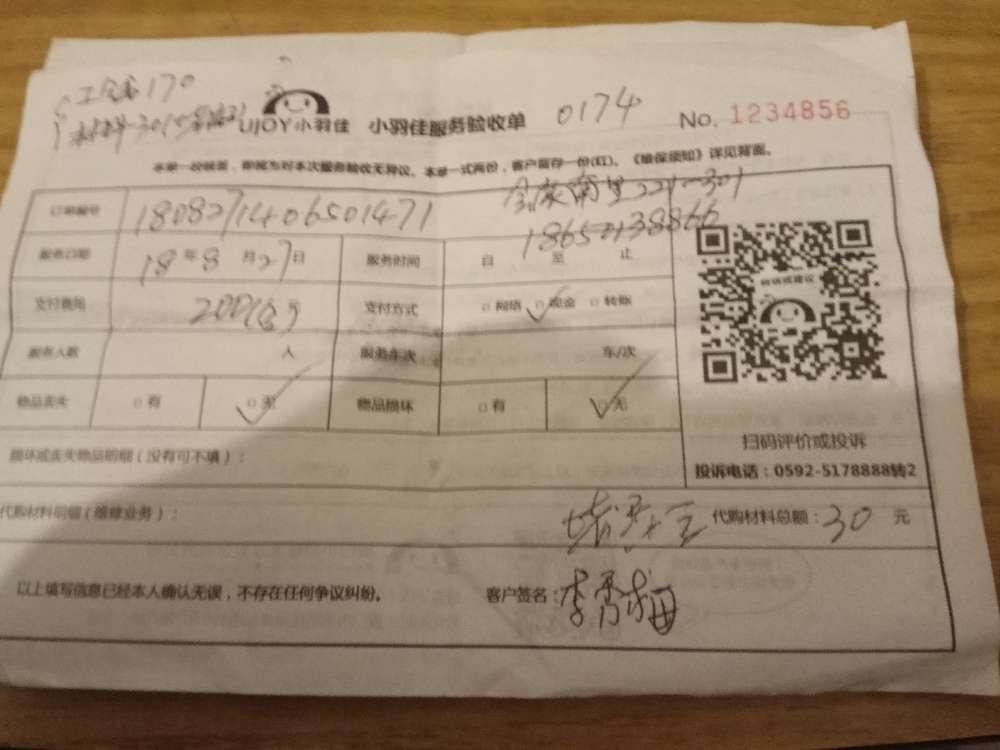 工会备170
UJOY小羽佳 小羽佳服务验收单 0174 No. 1234856
本单一经签署,即视为对本次服务验收无异议。本单一式两份,客户留存一份(红)。《维保须知》详见背面。
南里221-301
订单编号 1808271406501471 18650138866
服务日期 18年8月27日 服务时间 自 至 止
支付费用 200 元 支付方式 □网络 □现金 □转账
服务人数 人 服务车次 车/次
物品丢失 □有 □无 物品损坏 □有 □无
扫码评价或投诉
投诉电话:0592-5178888转2
损坏或丢失物品明细(没有可不填):
代购材料明细(维修业务): 代购材料总额:30 元
以上填写信息已经本人确认无误,不存在任何争议纠纷。 客户签名:李秀梅